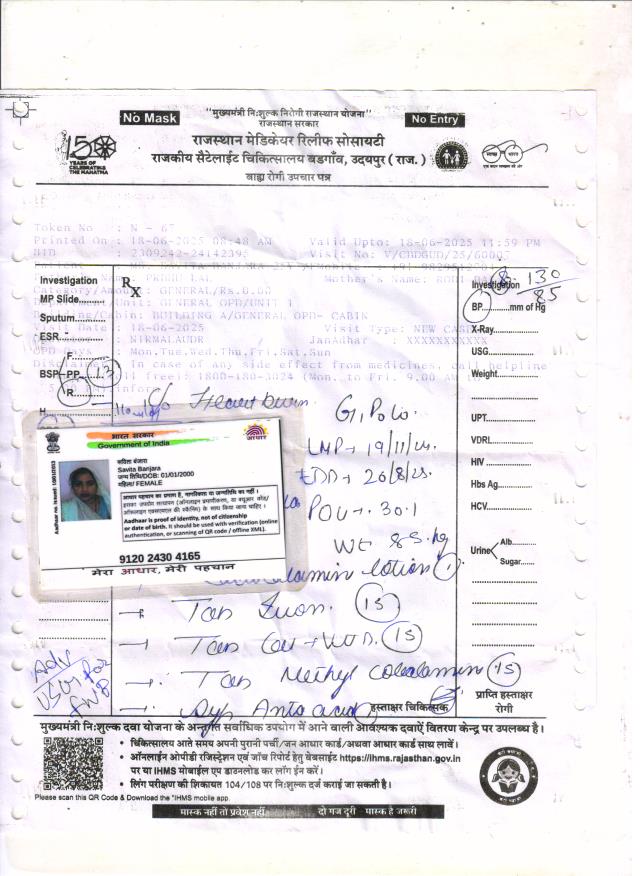 "मुख्यमंत्री निःशुल्क निरोगी राजस्थान योजना"
No Mask
No Entry
राजस्थान सरकार
राजस्थान मेडिकेयर रिलीफ सोसायटी
राजकीय सैटेलाईट चिकित्सालय बडगाँव, उदयपुर ( राज. )
वाह्य रोगी उपचार पत्र
150
YEARS OF
CELEBRATING
THE MAHATMA
Token No : N - 67
Printed On : 18-06-2025 08:48 AM Valid Upto: 18-06-2025 11:59 PM
2309242-24142395 Visit No: V/CBDGUD/25/60005
Mother's Name:
Category/Amount: GENERAL/Rs.0.00
Unit: GENERAL OPD/UNIT 1
Building/Cabin: BUILDING A/GENERAL OPD- CABIN
Visit Date : 18-06-2025 Visit Type: NEW CASE
NIRMALAUDR JanAadhar : XXXXXXXXXXX
OPD Days : Mon,Tue,Wed,Thu,Fri,Sat,Sun
In case of any side effect from medicines, call helpline
free): 1800-180-3024 (Mon. to Fri. 9.00 AM
Investigation
MP Slide
Sputum
ESR
F
BSP PP
R
H
Rx
Investigation
130/85
BP mm of Hg
X-Ray
USG
Weight
UPT
VDRL
HIV
Hbs Ag
HCV
Urine Alb.
Sugar
C/o Heart burn
G1P0L0
LMP → 19/11/24
EDD → 26/8/25
POG → 30.1
WE 85 kg
भारत सरकार
Government of India
आधार
सविता बंजारा
Savita Banjara
जन्म तिथि/DOB: 01/01/2000
महिला/ FEMALE
आधार पहचान का प्रमाण है, नागरिकता या जन्मतिथि का नहीं।
इसका उपयोग सत्यापन (ऑनलाइन प्रमाणीकरण, या क्यूआर कोड/
ऑफलाइन एक्सएमएल की स्कैनिंग) के साथ किया जाना चाहिए।
Aadhaar is proof of identity, not of citizenship
or date of birth. It should be used with verification (online
authentication, or scanning of QR code / offline XML).
9120 2430 4165
मेरा आधार, मेरी पहचान
lotion 1
→ Tab 15
→ Tab Cal + Vit D. 15
→ Tab Methyl cobalamin 15
→ Syp Antacid
Adv
USG for
FWB
हस्ताक्षर चिकित्सक
प्राप्ति हस्ताक्षर
रोगी
मुख्यमंत्री निःशुल्क दवा योजना के अन्तर्गत सर्वाधिक उपयोग में आने वाली आवश्यक दवाऐं वितरण केन्द्र पर उपलब्ध है।
• चिकित्सालय आते समय अपनी पुरानी पर्ची/जन आधार कार्ड/अथवा आधार कार्ड साथ लावें।
• ऑनलाईन ओपीडी रजिस्ट्रेशन एवं जाँच रिपोर्ट हेतु वेबसाईट https://ihms.rajasthan.gov.in
पर या IHMS मोबाईल एप डाउनलोड कर लॉग ईन करें।
• लिंग परीक्षण की शिकायत 104/108 पर निःशुल्क दर्ज कराई जा सकती है।
Please scan this QR Code & Download the "IHMS mobile app.
मास्क नहीं तो प्रवेश नहीं दो गज दूरी - मास्क है जरूरी